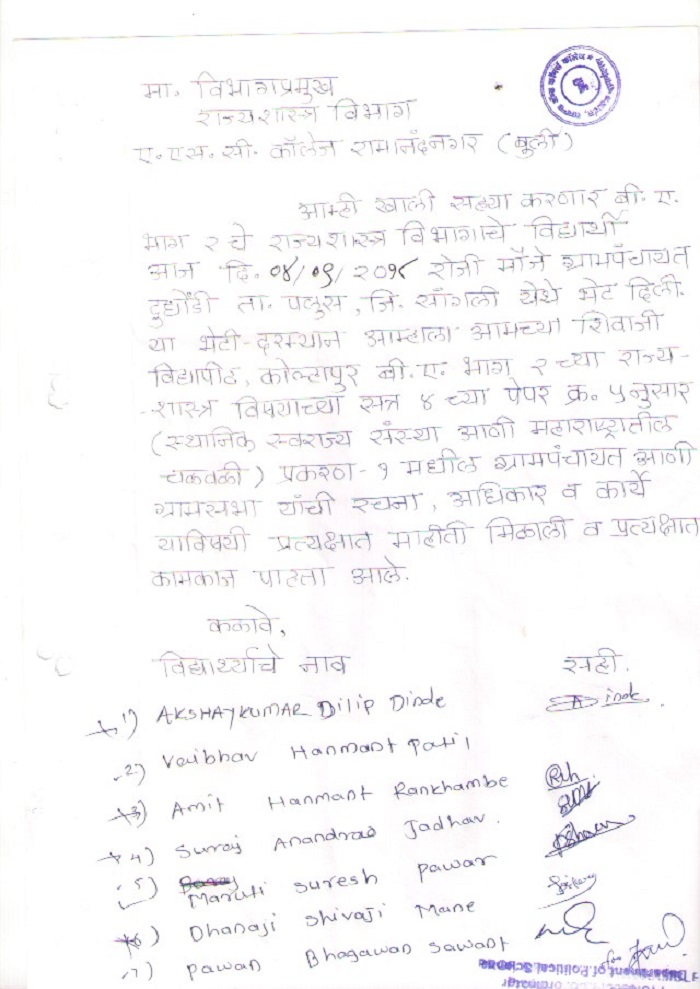 मा. विभागप्रमुख
राज्यशास्त्र विभाग
ए. एस. सी. कॉलेज रामानंदनगर (बुर्ली)
आम्ही खाली सह्या करणार बी. ए.
भाग २ चे राज्यशास्त्र विभागाचे विद्यार्थी
आज दि. ०४/०९/२०१८ रोजी मौजे ग्रामपंचायत
दुधोंडी ता. पलुस, जि. सांगली येथे भेट दिली.
या भेटी-दरम्यान आम्हाला आमच्या शिवाजी
विद्यापीठ, कोल्हापुर बी. ए. भाग २ च्या राज्य-
-शास्त्र विषयाच्या सत्र ४ च्या पेपर क्र. ५ नुसार
(स्थानिक स्वराज्य संस्था आणी महाराष्ट्रातील
चळवळी) प्रकरण-१ मधील ग्रामपंचायत आणी
ग्रामसभा यांची रचना, अधिकार व कार्ये
याविषयी प्रत्यक्षात माहीती मिळाली व प्रत्यक्षात
कामकाज पाहता आले.
कळावे,
विद्यार्थ्याचे नाव सही.
1) AKSHAYKUMAR Dilip Dinde
2) Vaibhav Hanmant Patil
3) Amit Hanmant Rankhambe
4) Suraj Anandrao Jadhav.
5) Maruti Suresh Pawar
6) Dhanaji Shivaji Mane
7) Pawan Bhagawan Sawant
Department of Political Science